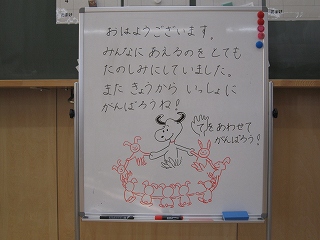 おはようございます。
みんなに あえるのを とても
たのしみにしていました。
また きょうから いっしょに
がんばろうね!
てをあわせて
がんばろう!